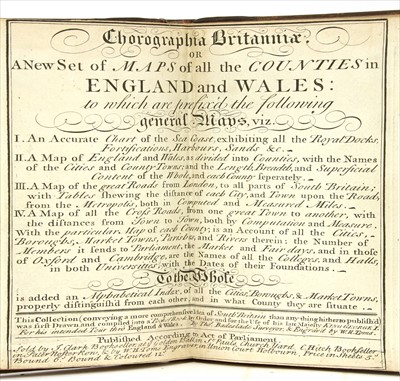 Chorographia Britanniæ.
OR
A New Set of MAPS of all the COUNTIES in
ENGLAND and WALES:
to which are prefix'd the following
general Maps, viz.
I. An Accurate Chart of the Sea Coast, exhibiting all the Royal Docks,
Fortifications, Harbours, Sands &c.
II. A Map of England and Wales, as divided into Counties, with the Names
of the Cities and County-Towns, and the Length, Breadth, and Superficial
Content of the Whole, and each County seperately.
III. A Map of the great Roads from London, to all parts of South Britain;
with Tables shewing the distance of each City, and Town upon the Road,
from the Metropolis, both in Computed and Measured Miles.
IV. A Map of all the Cross Roads, from one great Town to another, with
the distances from Town to Town, both by Computation and Measure.
With the particular Map of each County; is an Account of all the Cities,
Boroughs, Market Towns, and Rivers therein; the Number of
Members it sends to Parliament, the Market and Fair days, and in those
of Oxford and Cambridge, are the Names of all the Colleges, and Halls,
in both Universities, with the Dates of their Foundations.
To the Whole
is added an Alphabetical Index, of all the Cities, Boroughs, & Market Towns,
properly distinguish'd from each other, and in what County they are situate.
This Collection (conveying a more comprehensive Idea of South Britain than any thing hitherto publish'd)
was first Drawn and compiled into a Pocket Book by Order and for the Use of his late Majesty KING GEORGE I.
For his intended Tour thro' England & Wales. By Tho. Badeslade Surveyor, & Engrav'd by W. H. Toms
Published According to Act of Parliament
Sold by J. Clark Bookseller at ye Golden Ball in St. Pauls Church Yard, C. Hitch Bookseller
in Pater Noster Row, & by W. H. Toms Engraver in Union Court Holbourn. Price in Sheets
Bound & Coloured